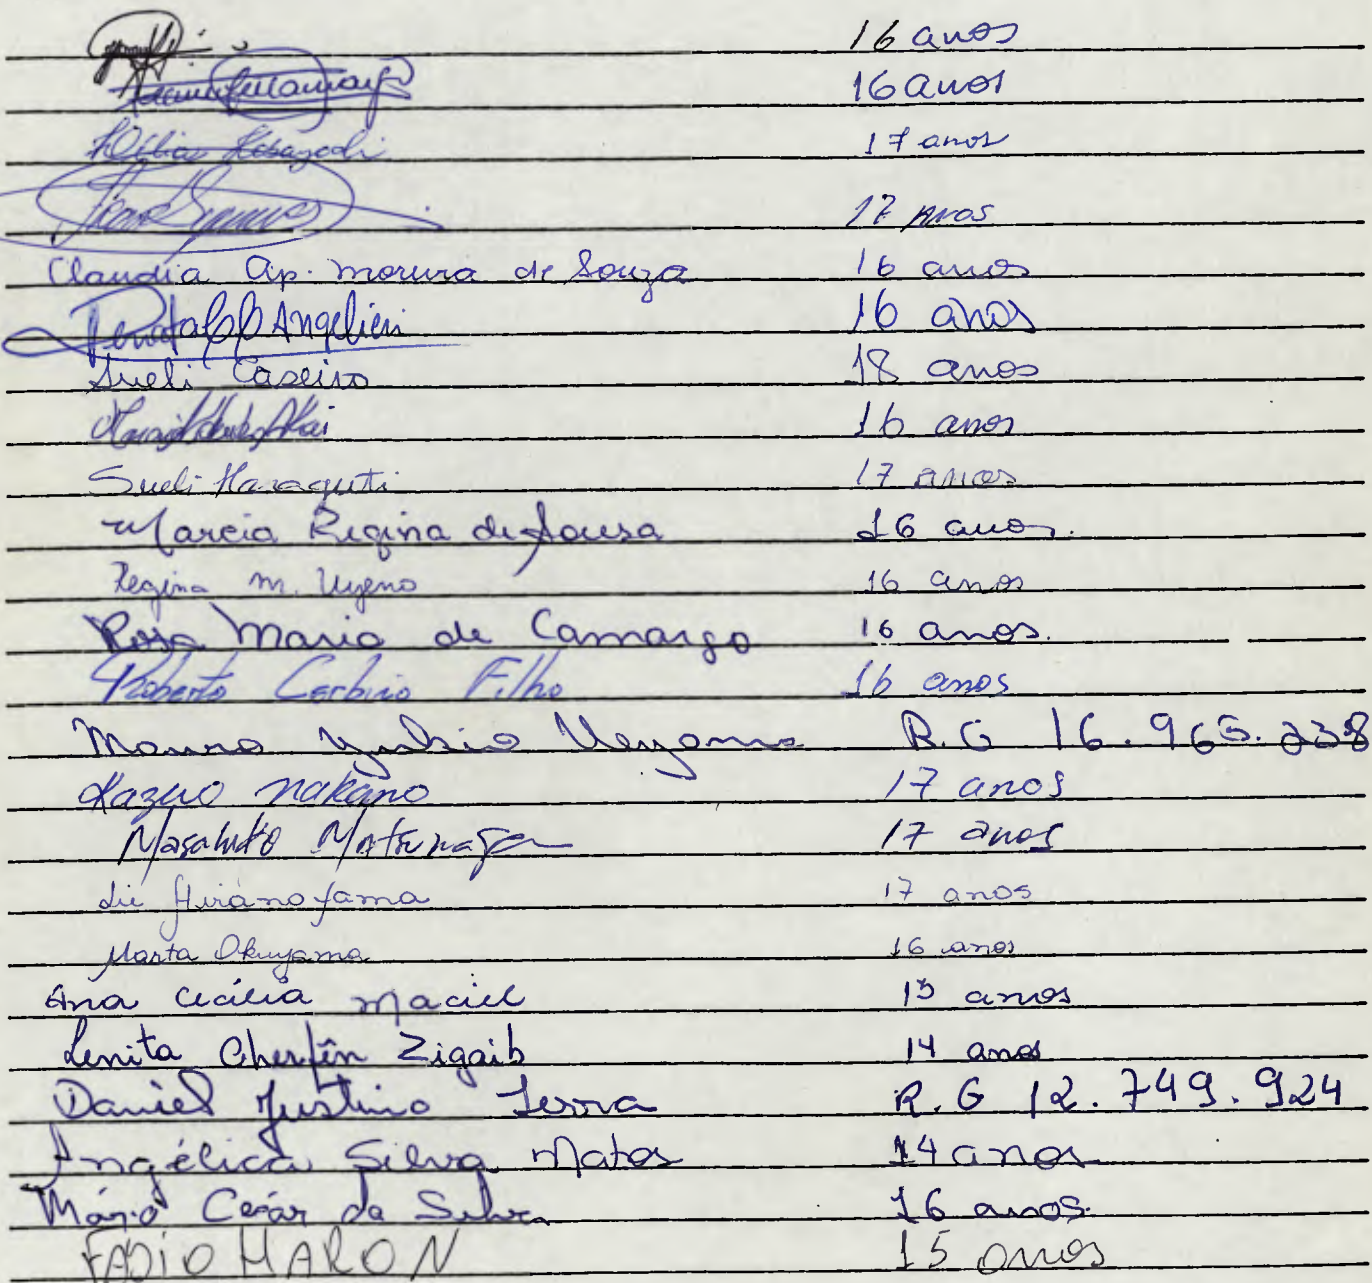 16 anos
16 anos
17 anos
17 anos
Claudia Ap. Moreira de Souza 16 anos
Angelieri 16 anos
Sueli Caseiro 18 anos
16 anos
Sueli Haraguti 17 anos
Marcia Regina de Sousa 16 anos.
Regina M. Uyeno 16 anos
Rosa Maria de Camargo 16 anos.
Roberto Cerbino Filho 16 anos
Mauro Yukio Ueyama R.G 16.965.238
Kazuo Nakano 17 anos
Masahito Matsunaga 17 anos
Lie Hiranoyama 17 anos
Marta Okuyama 16 anos
Ana Cecília Maciel 13 anos
Lenita Cherfên Zigaib 14 anos
Daniel Justino Serra R.G 12.749.924
Angélica Silva Matos 14 anos
Mário César da Silva 16 anos.
FABIO MARON 15 anos